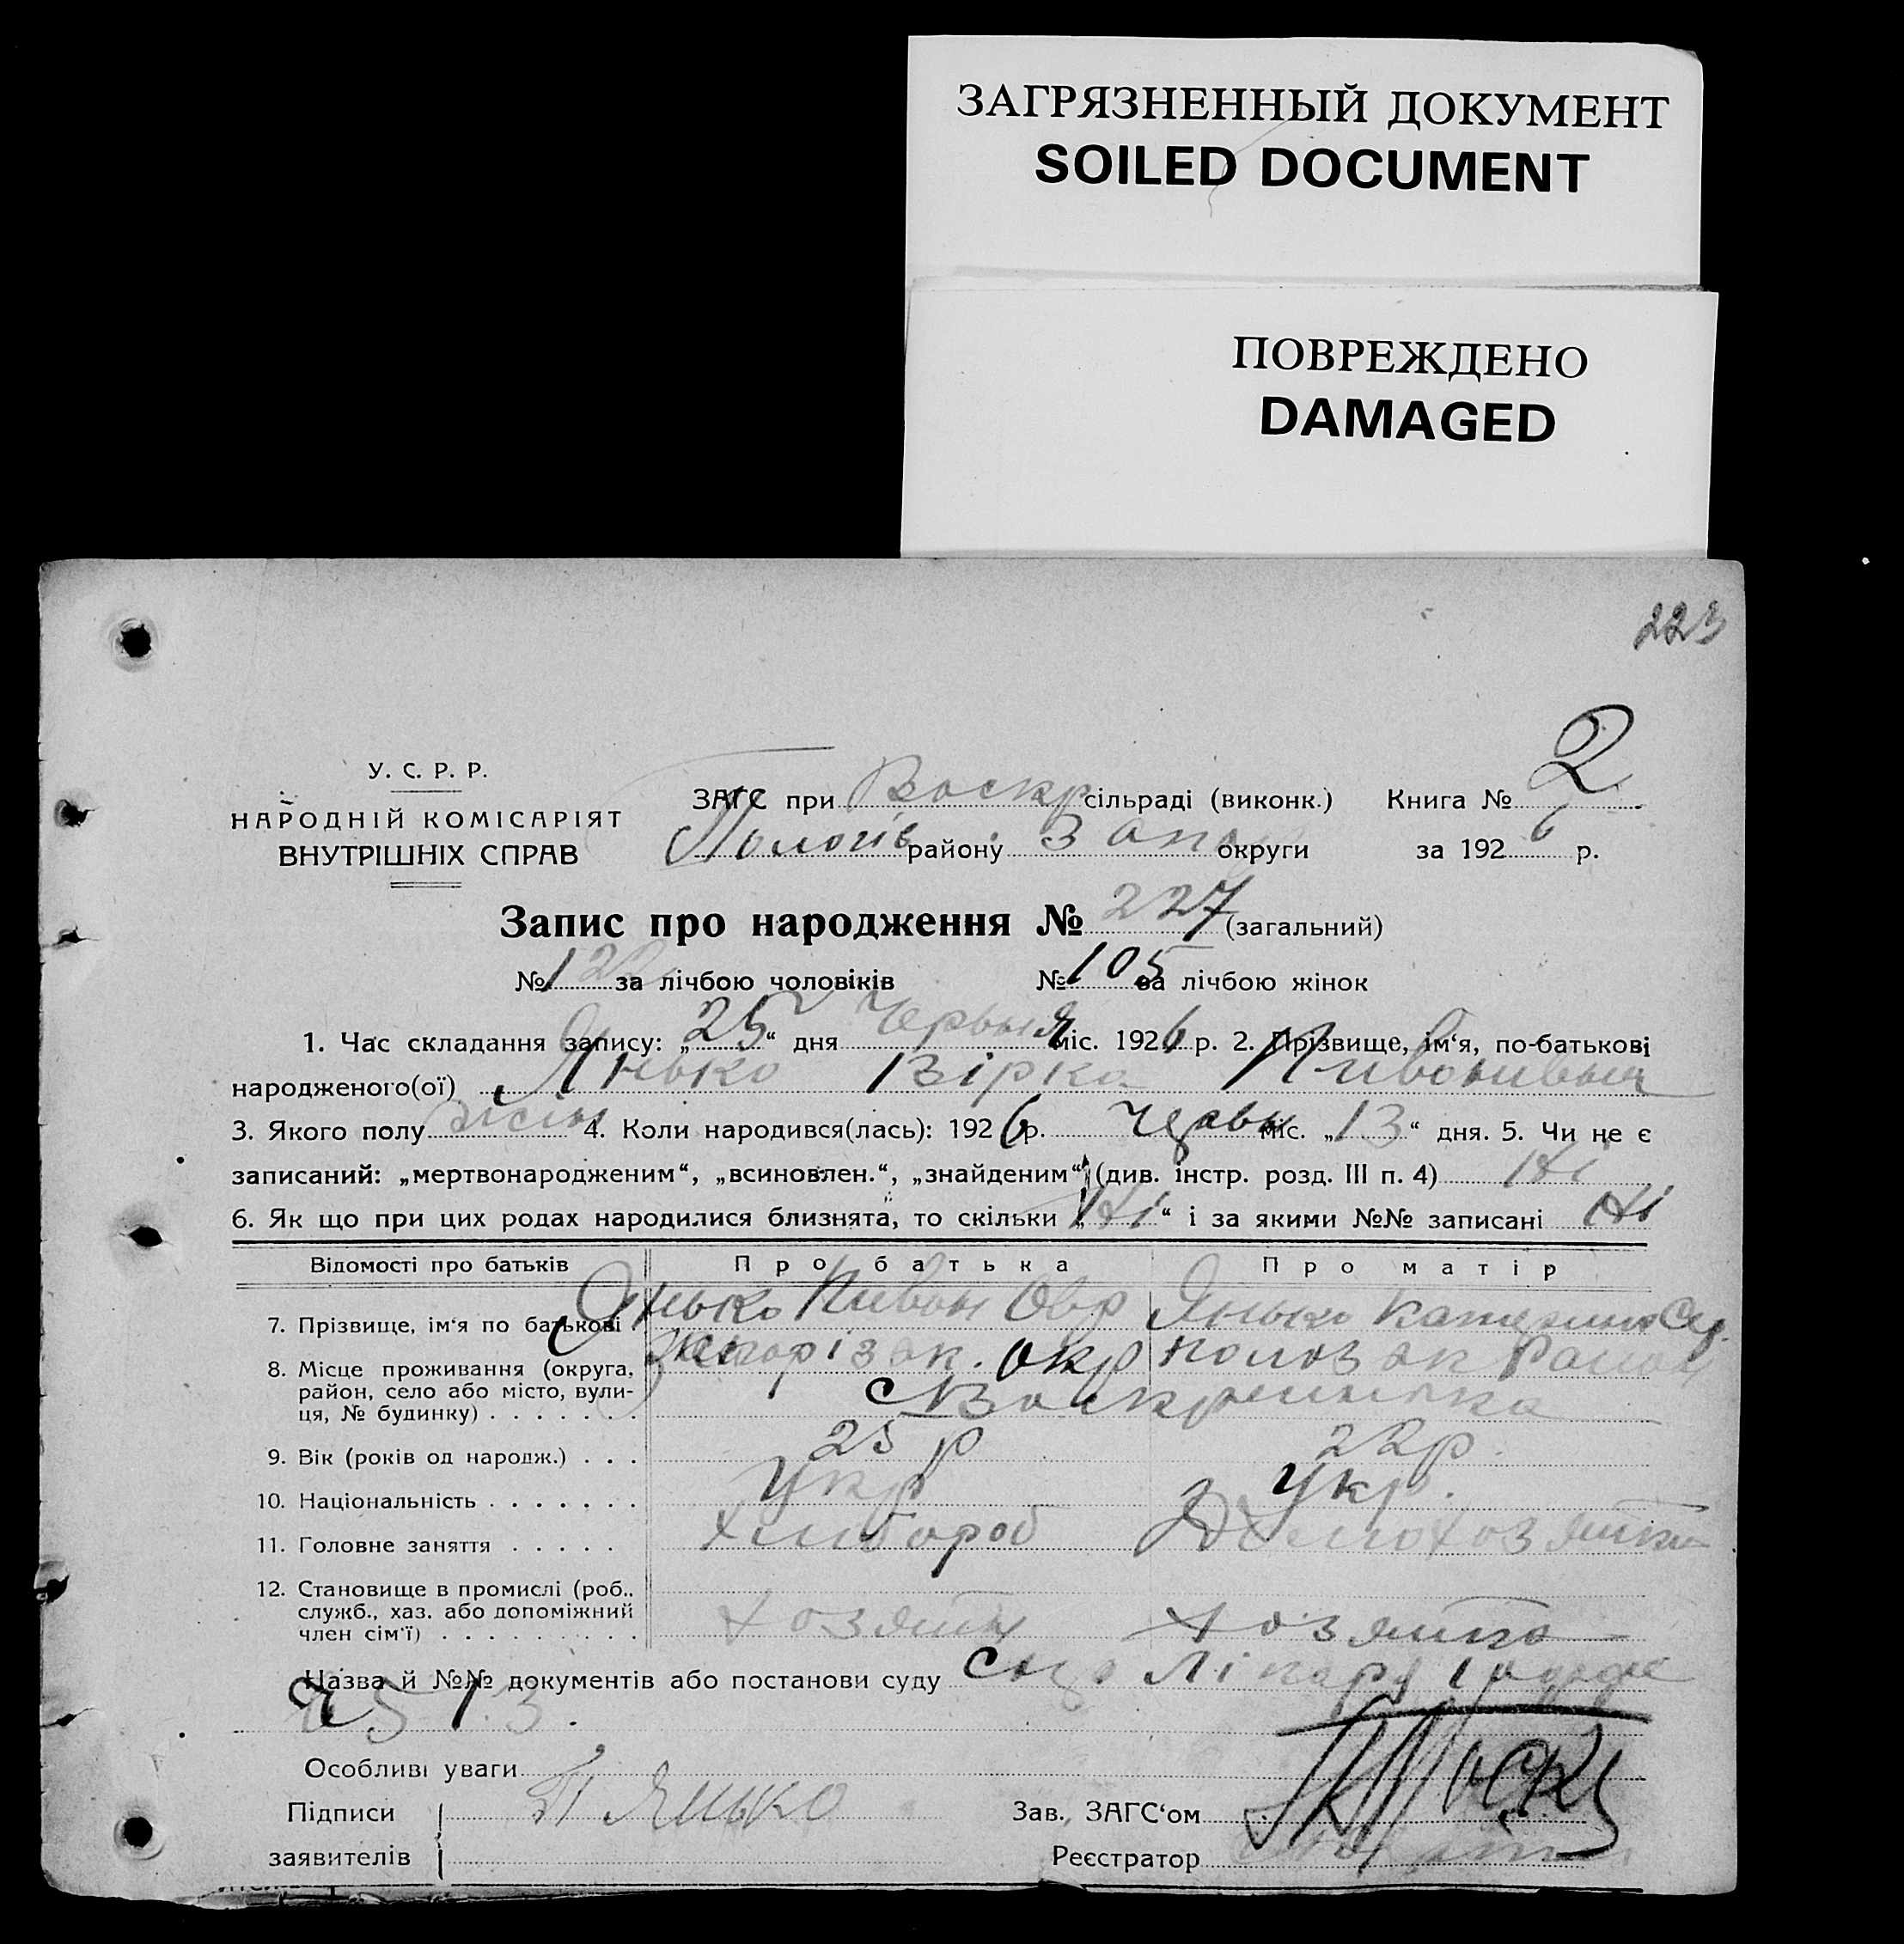 ЗАГРЯЗНЕННЫЙ ДОКУМЕНТ
SOILED DOCUMENT
ПОВРЕЖДЕНО
DAMAGED
223
У. С. Р. Р.
НАРОДНІЙ КОМІСАРІЯТ
ВНУТРІШНІХ СПРАВ
ЗАГС при Воскр сільраді (виконк.) Книга № 2
Пологів району Зап округи за 1926 р.
Запис про народження № 227 (загальний)
№ 122 за лічбою чоловіків № 105 за лічбою жінок
1. Час складання запису: „25“ дня Червня міс. 1926 р. 2. Прізвище, ім‘я, по-батькові
народженого(ої) Янько Вірка
3. Якого полу жін 4. Коли народився(лась): 1926 р. Червн міс. „13“ дня. 5. Чи не є
записаний: „мертвонародженим“, „всиновлен.“, „знайденим“ (див. інстр. розд. III п. 4) Ні
6. Як що при цих родах народилися близнята, то скільки „Ні“ і за якими №№ записані Ні
Відомості про батьків Про батька Про матір
7. Прізвище, ім‘я по батькові Янько Пивон Янько Катерина
8. Місце проживання (округа, Запорізьк. окр район
район, село або місто, вули-
ця, № будинку) с Воскресенька
9. Вік (років од народж.) 25 р 22 р.
10. Національність Укр Укр.
11. Головне заняття Хлібороб Домохозяйка
12. Становище в промислі (роб..
служб., хаз. або допоміжний
член сім‘ї) хозяин хозяйка
Назва й №№ документів або постанови суду
Особливі уваги
Підписи П Янько Зав., ЗАГС‘ом
заявителів Реєстратор